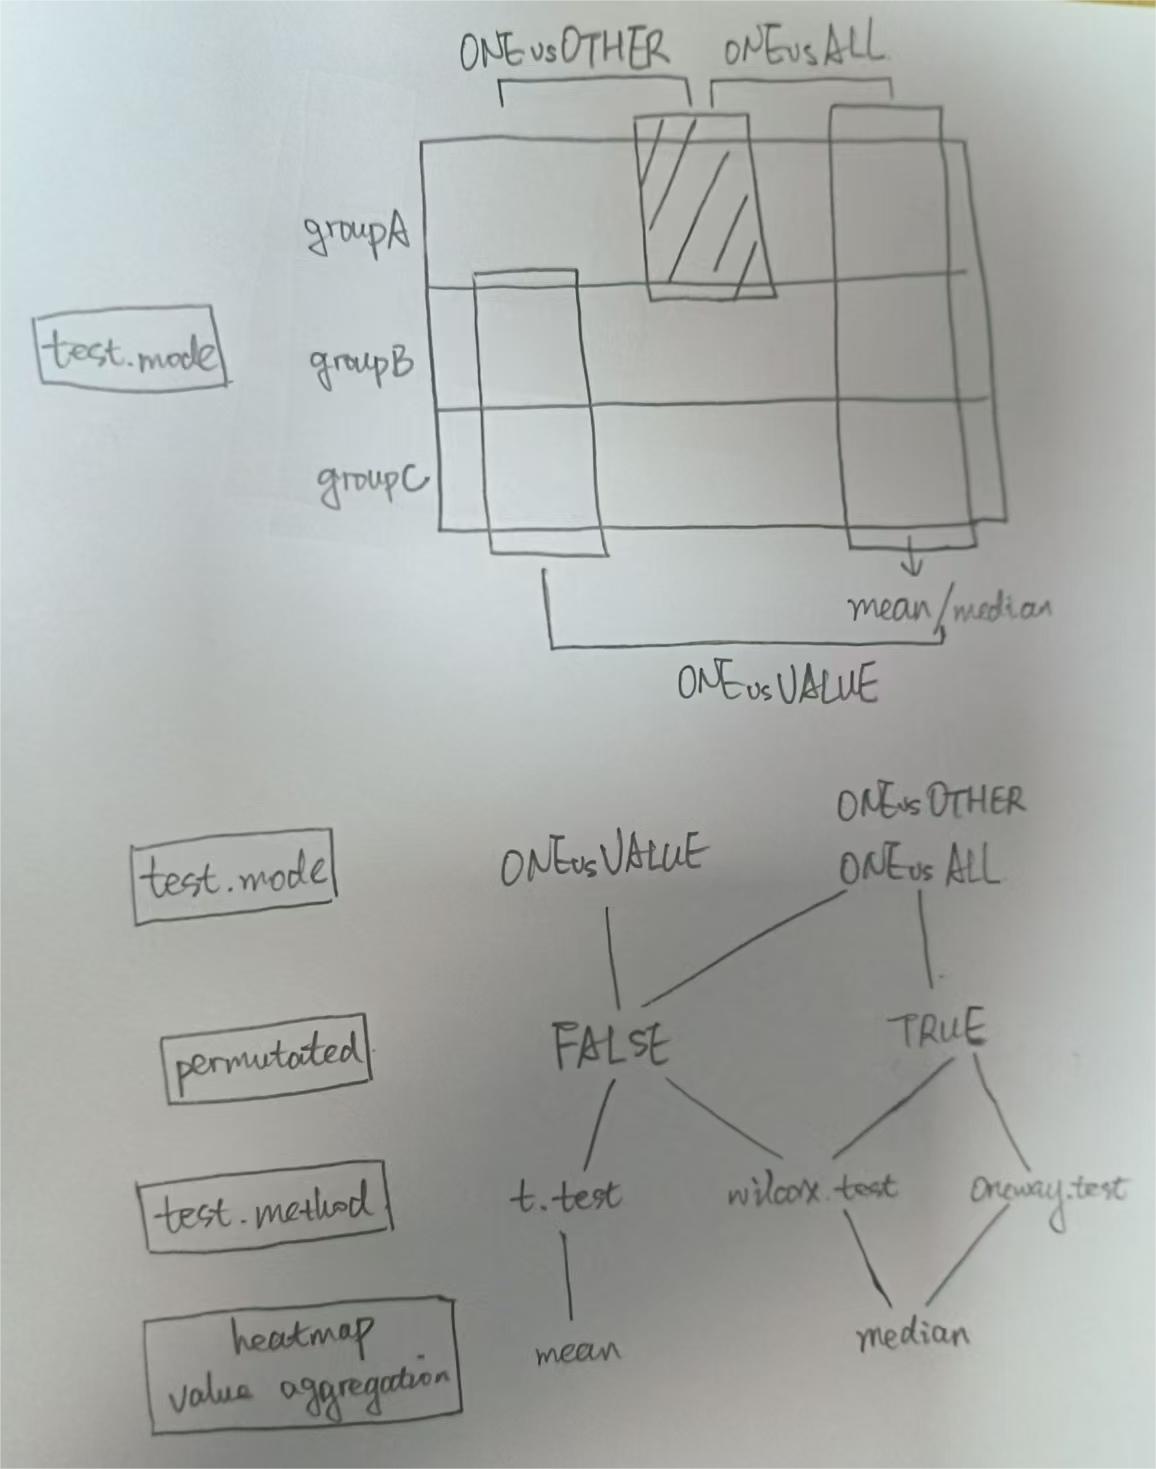 ONEvsOTHER
ONEvsALL
groupA
test.mode
groupB
groupC
mean/median
ONEvsVALUE
test.mode
ONEvsVALUE
ONEvsOTHER
ONEvsALL
permutated
FALSE
TRUE
test.method
t.test
wilcox.test
oneway.test
heatmap
value aggregation
mean
median